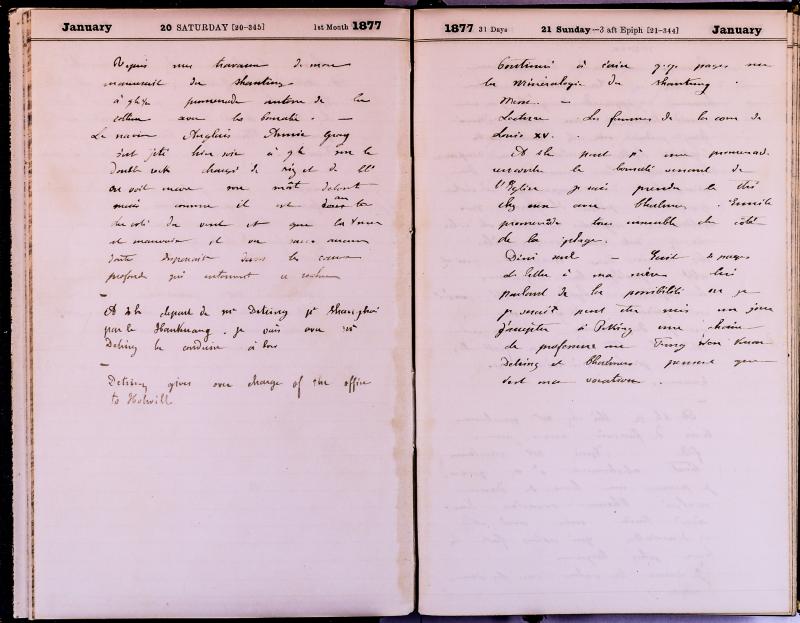 January 20 SATURDAY [20-345] 1st Month 1877
Repris mes travaux de mon
manuscrit du Shantung
à 9h½ promenade autour de la
colline avec les
Le navire Anglais Annie Gray
s'est jeté hier soir à 9h sur le
double rock chargé de riz et de
on voit encore son mât debout
mais comme il est dans la
du côté du vent et que la
est mauvaise il va sans aucun
doute disparaître dans les eaux
profondes qui entourent ce rocher
A départ de Mr Detring pr Shanghai
par le Hankwang. Je vais avec Mr
Detring le conduire à bord
Detring gives over charge of the office
to Hobvill
1877 31 Days 21 Sunday—3 aft Epiph [21-344] January
Continué à écrire pages sur
la Minéralogie du Shantung.
Messe. —
Lecture Les femmes de la cour de
Louis XV.
A part pr une promenade
rencontre le venant de
l'Eglise je vais prendre le thé
chez eux avec Chalmers. Ensuite
promenade tous ensemble du côté
de la plage.
Diné seul — Ecrit 4 pages
de lettre à ma mère lui
parlant de la possibilité où je
pourrais peut être mis un jour
d'accepter à Peking une chaire
de professeur au Tung Wen Kuan
Detring et Chalmers pensent que
c'est ma vocation.